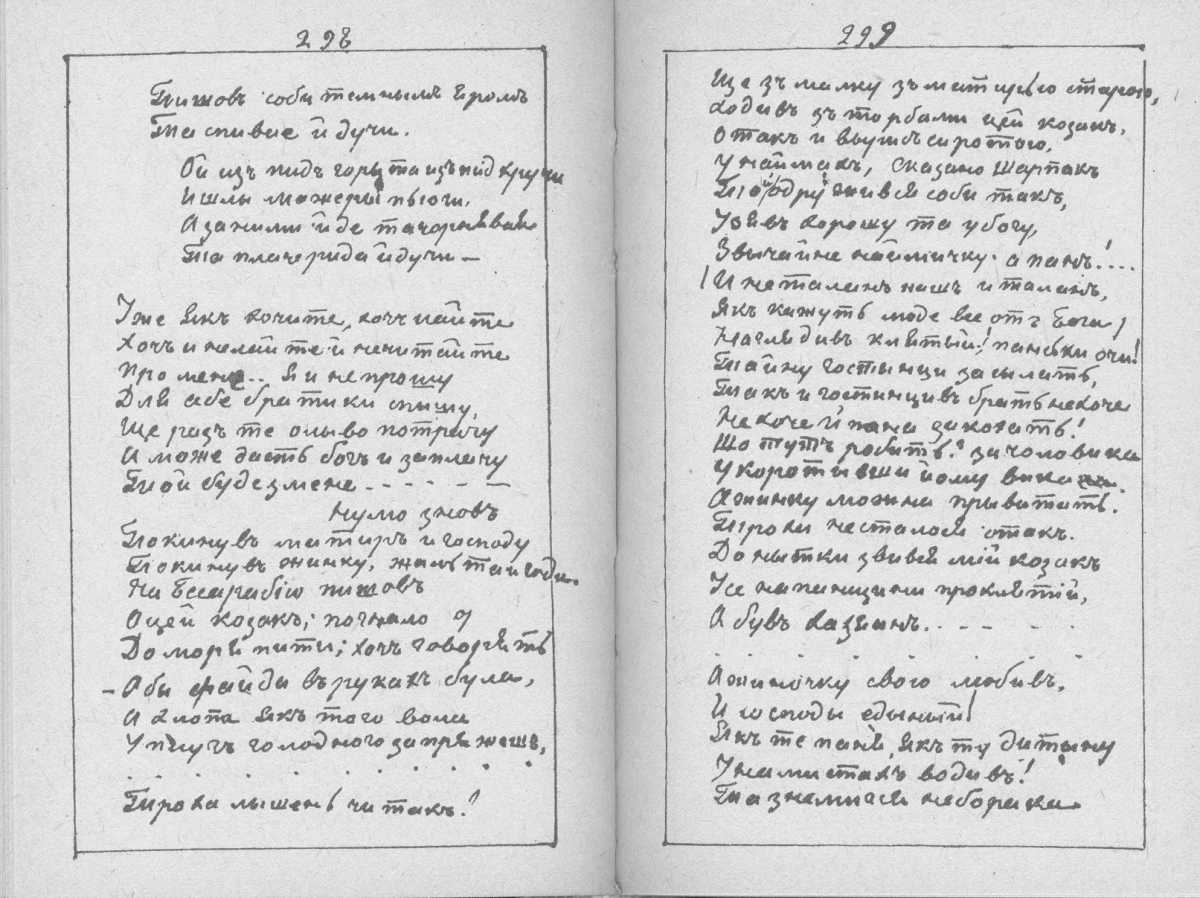 298
Пишовъ соби темнымъ яромъ
Та спивае йдучи.
Ой изъ пидъ горы та изъ пид кручи
Ишлы мажеры рыпучи.
А за ними йде та чорнявая
Та плаче рида йдучи —
Уже якъ хочите, хоч лайте
Хочъ и нелайте й нечитайте
Про мене.. Я и непрошу
Для себе братики спишу,
Ще разъ те оливо потрачу
А може дасть богъ и заплачу
То й буде з мене - - - - -
Нумо зновъ
Покинувъ матирь и господу
Покинувъ жинку, жаль та й годи.
На Бесарабію пишовъ
Оцей козакъ; погнало
До моря пити; хочъ говорять
Аби файда въ рукахъ була,
А хлопа якъ того вола
У плугъ голодного запряжешъ,
. . . . . . . . . .
Трохи лышень чи такъ!
299
Ще зъ малку зъ матирью старою,
Ходивъ зъ торбами цей козакъ,
Отакъ и выришъ сиротою,
У наймахъ, сказано шарпакъ
То й одружився соби такъ,
Узявъ хорошу та убогу,
Звычайне наймичку. а панъ!....
И неталанъ нашъ и таланъ,
Якъ кажуть люде все отъ Бога,
Наглядивъ клятый! паньски очи!
Та й ну гостынци засылать,
Такъ и гостинцивъ брать нехоче
Нехоче й пана закохать!
Що тутъ робить? за чоловика
Укоротивши йому вика.
А жинку можна привитать.
Трохи несталося отакъ.
До нытки звився мій козакъ
Усе напанщини проклятій,
А бувъ хазяинъ. . - - - -
. . . . . . . . .
А жиночку свою любивъ,
И господи едыный!
Якъ те паня, якъ ту дитыну
У намистахъ водивъ!
Та знемигся неборака